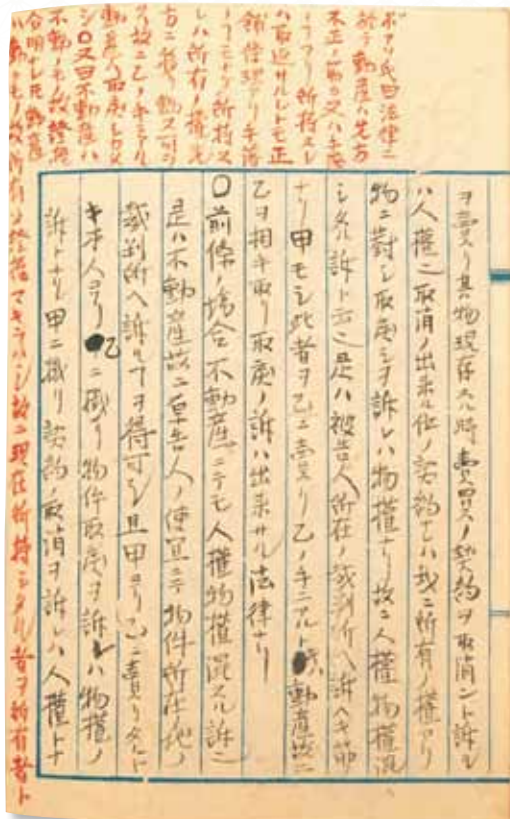 ボアソ氏曰法律ニ
於テ動産ハ先方
不正ノ筋カ又ハ
ニテモ所持スレ
ハ取返サルレトモ正
ノモノヲ所持ス
レハ所有ノ権先
方ニ移リ
故ニ乙ノ手ニアル
動産ハ取戻シカタ
シ〇又曰不動産ハ
不動ノモノ故證拠
分明ナレ𪜈動産
ハ動クモノ故所有ノ證拠マキラハシ故ニ現在所持シタル者ヲ所有者ト
ヲ賣リ其物現存スル時賣買ノ契約ヲ取消ント訴ル
ハ人權ニ取消ノ出来ル位ノ契約ナレハ我ニ所有ノ權アリ
物ニ對シ取戻シヲ訴レハ物權ナリ故ニ人權物權混
シタル訴ト云是ハ被告人所在ノ裁判所ヘ訴ヘキ節
ナリ甲モシ此者ヲ乙ニ賣リ乙ノ手ニアルト𪜈動産故ニ
乙ヲ相手取リ取戻ノ訴ハ出来サル法律ナリ
〇前條ノ場合不動産ニテモ人權物權混スル訴ニ
是ハ不動産故ニ原告人ノ便宜ニテ物件所在ノ地ノ
裁判所ヘ訴ルヿヲ得可シ且甲ヨリ乙ニ賣リタルト
キ本人ヨリ乙ニ掛リ物件取戻ヲ訴レハ物權ノ
訴トナリ甲ニ掛リ契約ノ取消ヲ訴レハ人權トナ